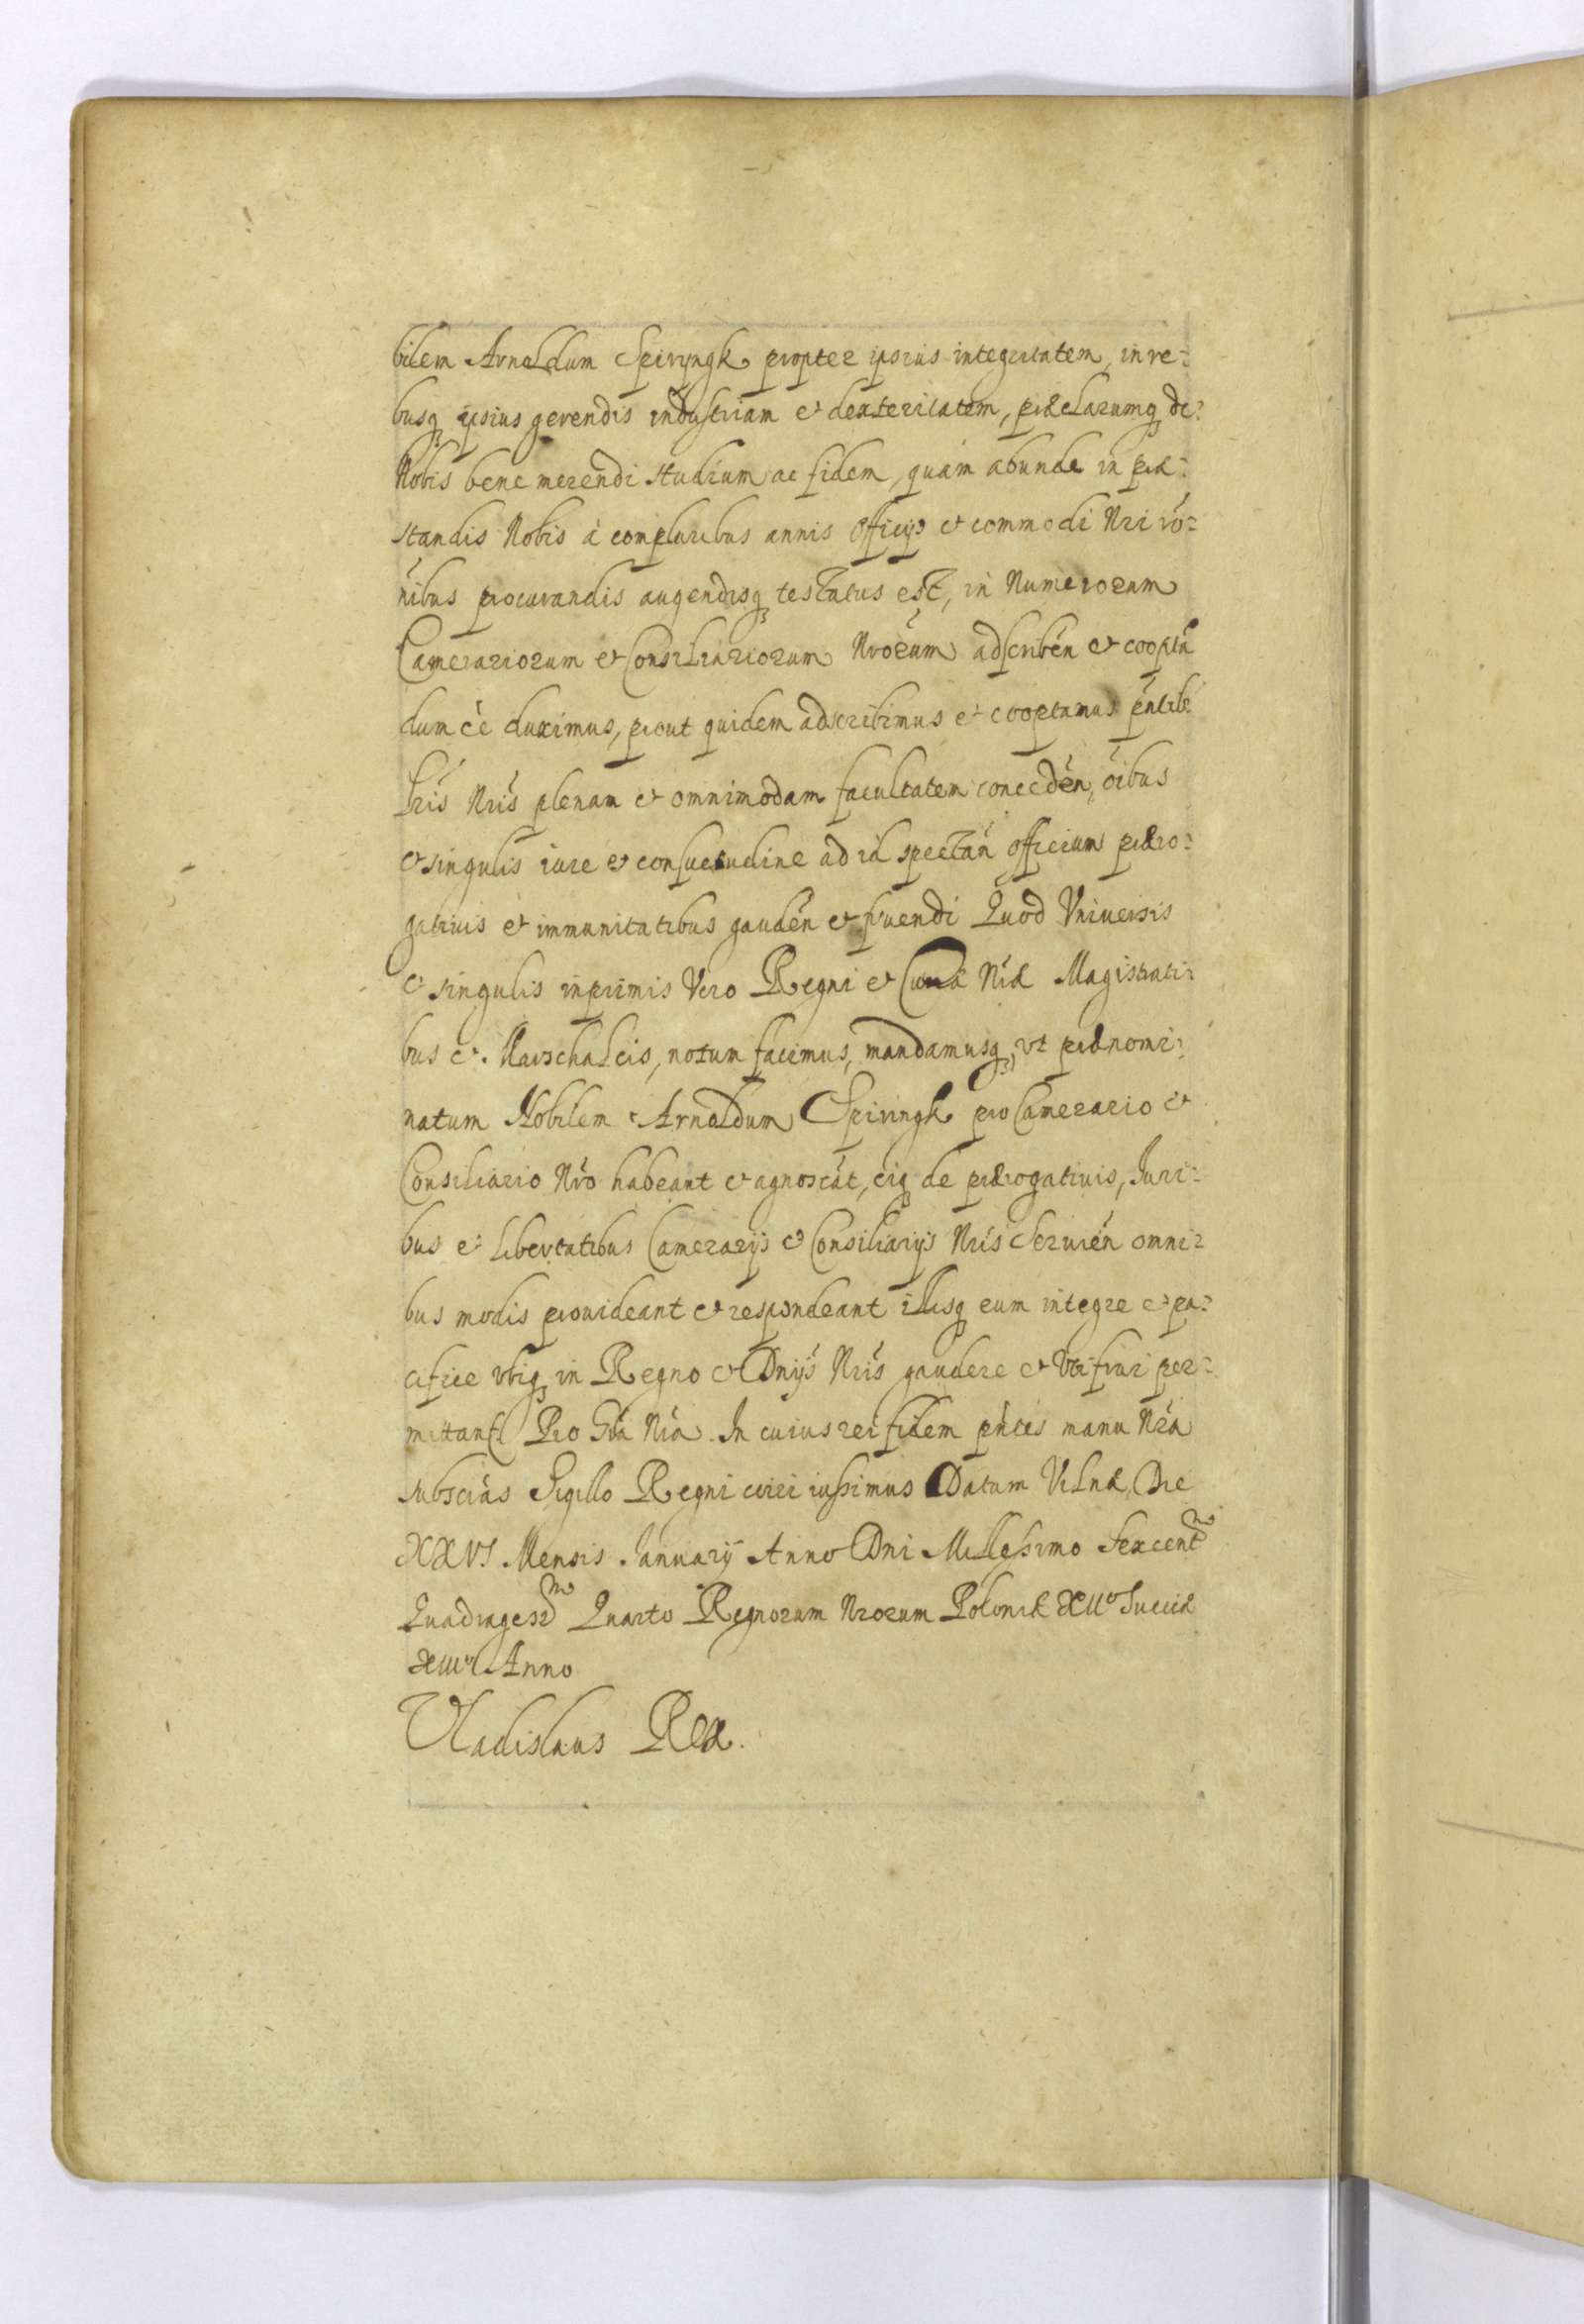 bilem Arnoldum Spiryngk propter ipsius integritatem, in re-
busq ipsius gerendis industriam et dexteritatem, præclarumq de
Nobis bene merendi studium ac fidem, quam abunde in præ-
standis Nobis à compluribus annis officijs et commodi Nri rõ-
nibus procurandis augendisq testatus est, in Numerorum
Camerariorum et Consiliariorum Nrorum adscribén et cooptã
dum ẽe duximus, prout quidem adscribimus et cooptamus pńtib
Lris Nris plenam et omnimodam facultatem concedén, óibus
et singulis iure et consuetudine ad id spectań officium præro-
gativis et immunitatibus gaudén et fruendi Quod Vniversis
et singulis inprimis Vero Regni et Curiæ Nræ Magistrati-
bus et Marschalcis, notum facimus, mandamusq, vt prænomi-
natum Nobilem Arnoldum Spiringk pro Camerario et
Consiliario Nro habeant et agnoscãt, eiq de prærogativis, Juri-
bus et libertatibus Camerarijs et Consiliarijs Nris Servién omni-
bus modis provideant et respondeant illisq eum integre et pa-
cifice vbiq in Regno et Dnijs Nris gaudere et Vti frui per-
mittant Pro Gra Nra. In cuius rei fidem pńtes manu Nra
subscrás Sigillo Regni coiri iussimus Datum Vilnæ, Die
XXVI Mensis Januarij Anno Dni Millesimo Sexcentmo
Quadragesimo Quarto Regnorum Nrorum Poloniæ XIIo Sueciæ
XIIIo Anno
Vladislaus Rex.